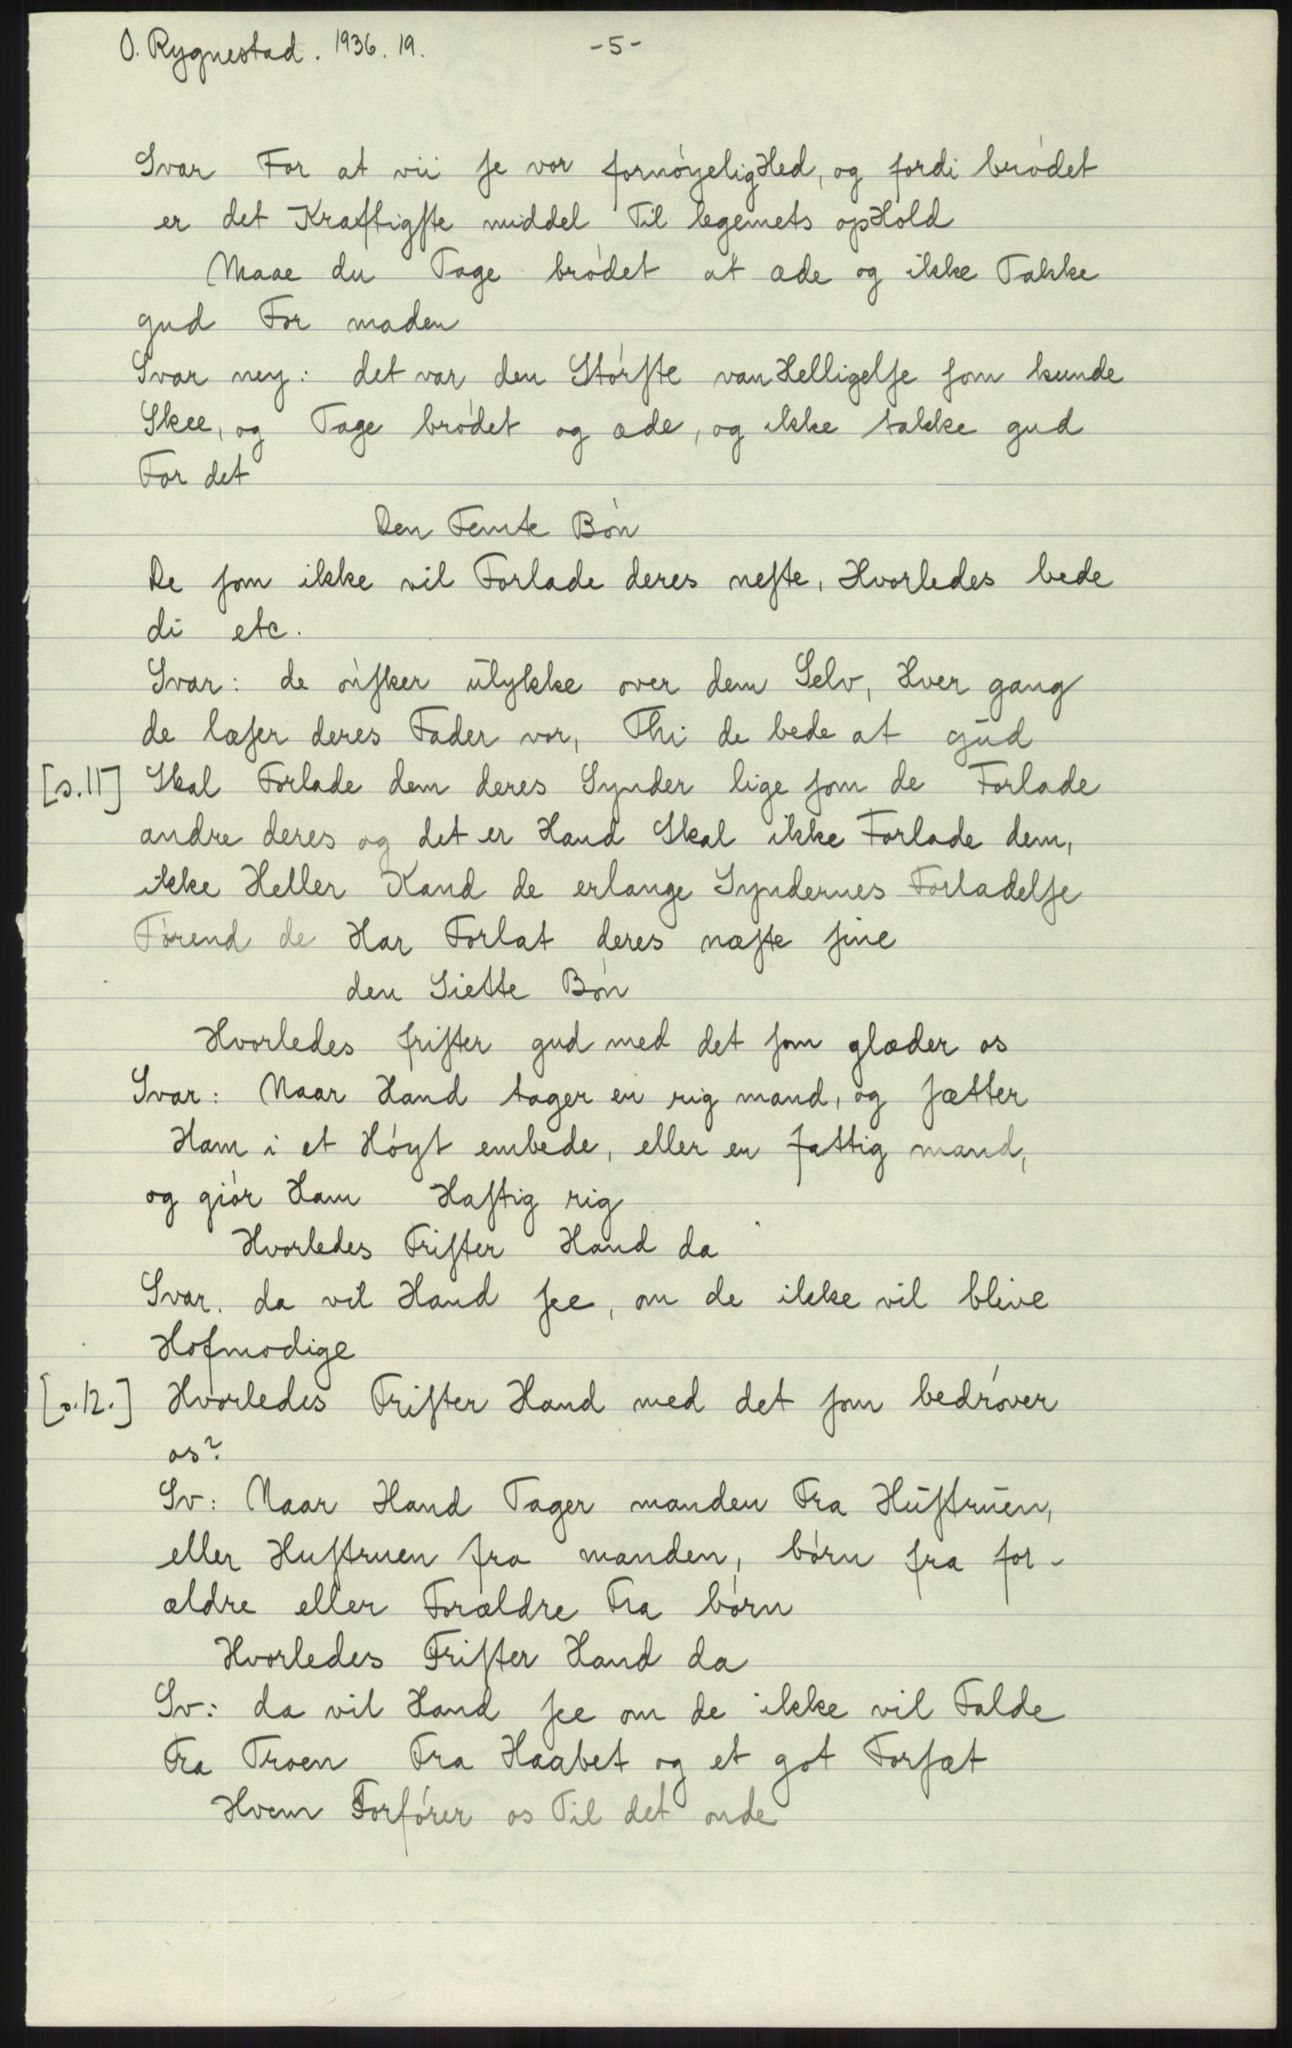 O. Rygnestad. 1936. 19. -5-
Svar For at vii ſe vor fornóyeligHed, og fordi bródet
er det Kraftigſte middel Til legemets opHold
Maae du Tage bródet at æde og ikke Takke
gud For maden
Svar ney: det var den Stórſte vanHelligelſe ſom kunde
Skee, og Tage bródet og æde, og ikke takke gud
For det
Den Femte Bón
De ſom ikke vil Forlade deres neſte, Hvorledes bede
di etc.
Svar: de ónſker ulykke over dem Selv, Hver gang
de læſer deres Fader vor, Thi de bede at gud
[s.11] Skal Forlade dem deres Synder lige ſom de Forlade
andre deres og det er Hand Skal ikke Forlade dem,
ikke Heller Kand de erlange Syndernes Forladelſe
Fórend de Har Forlat deres næſte ſine
den Siette Bón
Hvorledes friſter gud med det ſom glæder os
Svar: Naar Hand tager en rig mand, og ſætter
Ham i et Hóyt embede, eller en fattig mand,
og giór Ham Haſtig rig
Hvorledes Friſter Hand da
Svar. da vil Hand ſee, om de ikke vil blive
Hofmodige
[s.12.] Hvorledes Friſter Hand med det ſom bedróver
os?
Sv: Naar Hand Tager manden Fra Huſtruen,
eller Huſtruen fra manden, bórn fra for-
ældre eller Forældre Fra bórn
Hvorledes Friſter Hand da
Sv: da vil Hand ſee om de ikke vil Falde
Fra Troen Fra Haabet og et got Forſæt
Hvem Forfórer os Til det onde